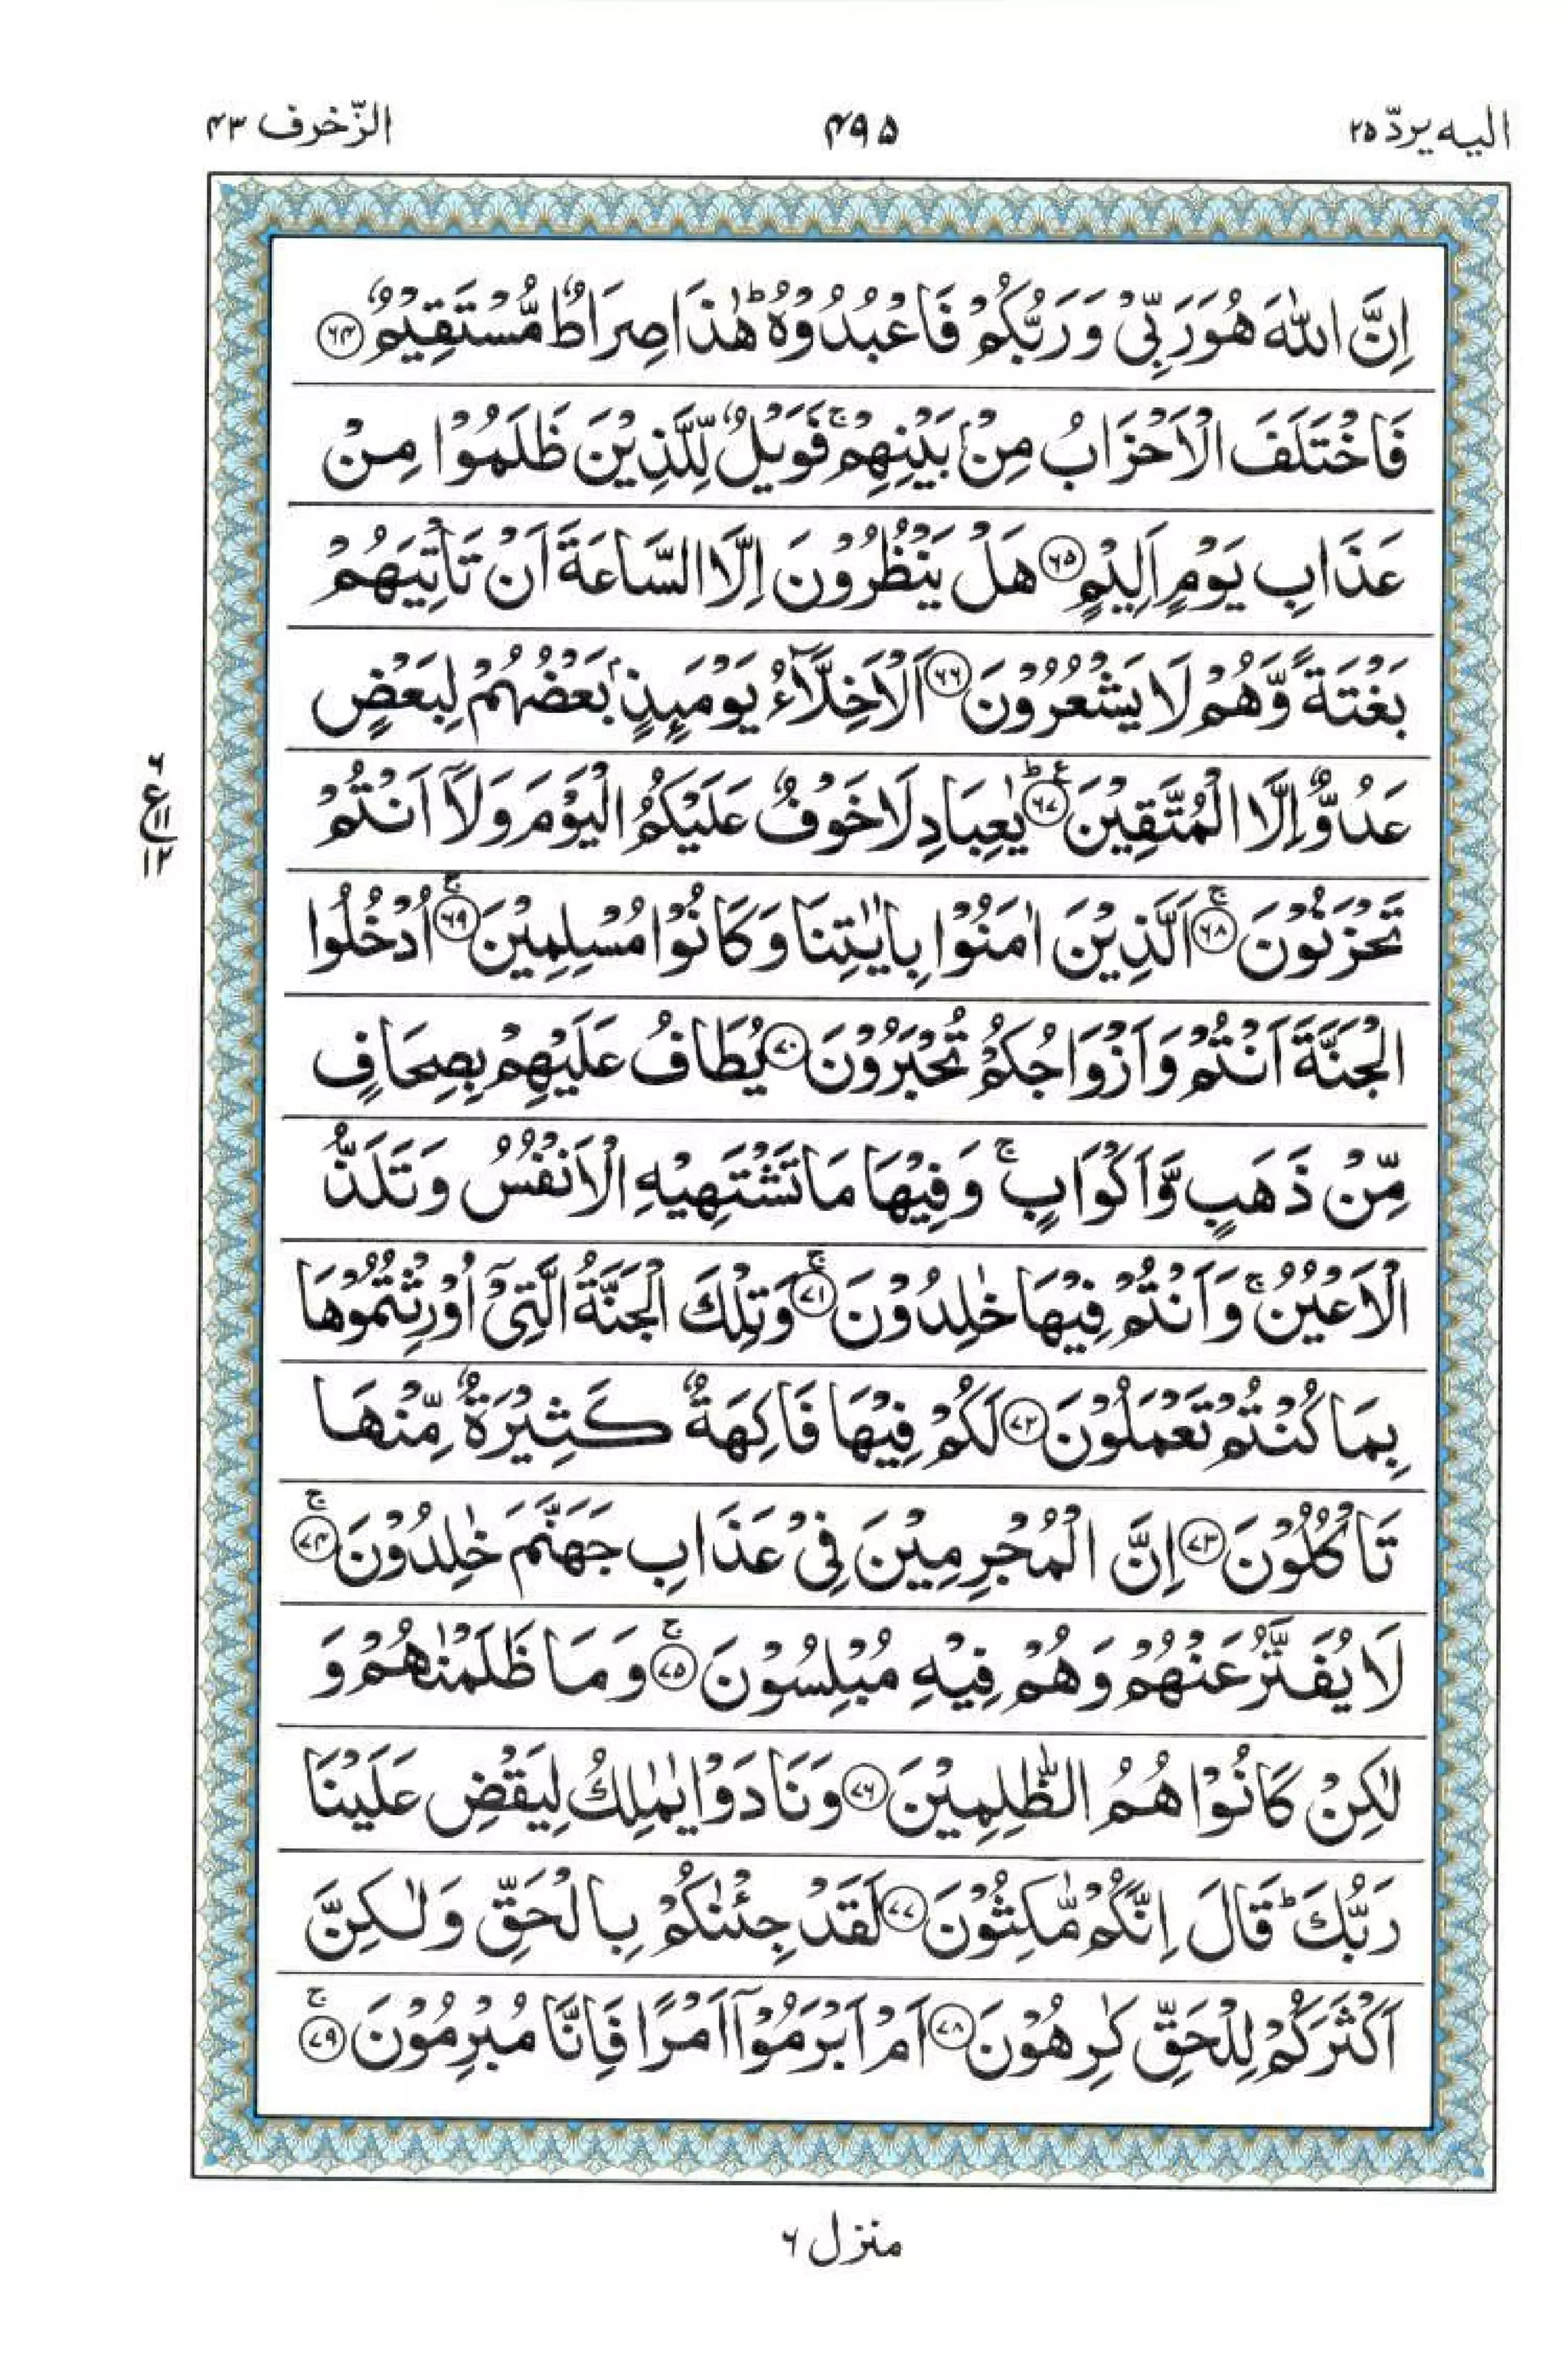 الیه یردّ ۲۵
۴۹۵
الزّخرف ۴۳
اِنَّ اللّٰهَ هُوَ رَبِّیْ وَ رَبُّكُمْ فَاعْبُدُوْهُ ؕ هٰذَا صِرَاطٌ مُّسْتَقِیْمٌ ﴿۶۴﴾
فَاخْتَلَفَ الْاَحْزَابُ مِنْۢ بَیْنِهِمْ ۚ فَوَیْلٌ لِّلَّذِیْنَ ظَلَمُوْا مِنْ
عَذَابِ یَوْمٍ اَلِیْمٍ ﴿۶۵﴾ هَلْ یَنْظُرُوْنَ اِلَّا السَّاعَةَ اَنْ تَاْتِیَهُمْ
بَغْتَةً وَّهُمْ لَا یَشْعُرُوْنَ ﴿۶۶﴾ اَلْاَخِلَّآءُ یَوْمَىِٕذٍۭ بَعْضُهُمْ لِبَعْضٍ
عَدُوٌّ اِلَّا الْمُتَّقِیْنَ ؕ۠ ﴿۶۷﴾ یٰعِبَادِ لَا خَوْفٌ عَلَیْكُمُ الْیَوْمَ وَلَاۤ اَنْتُمْ
تَحْزَنُوْنَ ۚ ﴿۶۸﴾ اَلَّذِیْنَ اٰمَنُوْا بِاٰیٰتِنَا وَكَانُوْا مُسْلِمِیْنَ ۚ ﴿۶۹﴾ اُدْخُلُوا
الْجَنَّةَ اَنْتُمْ وَاَزْوَاجُكُمْ تُحْبَرُوْنَ ﴿۷۰﴾ یُطَافُ عَلَیْهِمْ بِصِحَافٍ
مِّنْ ذَهَبٍ وَّاَكْوَابٍ ۚ وَفِیْهَا مَا تَشْتَهِیْهِ الْاَنْفُسُ وَتَلَذُّ
الْاَعْیُنُ ۚ وَاَنْتُمْ فِیْهَا خٰلِدُوْنَ ۚ ﴿۷۱﴾ وَتِلْكَ الْجَنَّةُ الَّتِیْۤ اُوْرِثْتُمُوْهَا
بِمَا كُنْتُمْ تَعْمَلُوْنَ ﴿۷۲﴾ لَكُمْ فِیْهَا فَاكِهَةٌ كَثِیْرَةٌ مِّنْهَا
تَاْكُلُوْنَ ﴿۷۳﴾ اِنَّ الْمُجْرِمِیْنَ فِیْ عَذَابِ جَهَنَّمَ خٰلِدُوْنَ ۚ ﴿۷۴﴾
لَا یُفَتَّرُ عَنْهُمْ وَهُمْ فِیْهِ مُبْلِسُوْنَ ۚ ﴿۷۵﴾ وَمَا ظَلَمْنٰهُمْ وَ
لٰكِنْ كَانُوْا هُمُ الظّٰلِمِیْنَ ﴿۷۶﴾ وَنَادَوْا یٰمٰلِكُ لِیَقْضِ عَلَیْنَا
رَبُّكَ ؕ قَالَ اِنَّكُمْ مّٰكِثُوْنَ ﴿۷۷﴾ لَقَدْ جِئْنٰكُمْ بِالْحَقِّ وَلٰكِنَّ
اَكْثَرَكُمْ لِلْحَقِّ كٰرِهُوْنَ ﴿۷۸﴾ اَمْ اَبْرَمُوْۤا اَمْرًا فَاِنَّا مُبْرِمُوْنَ ۚ ﴿۷۹﴾
۶
ع ۱۱
۱۲
منزل ۶